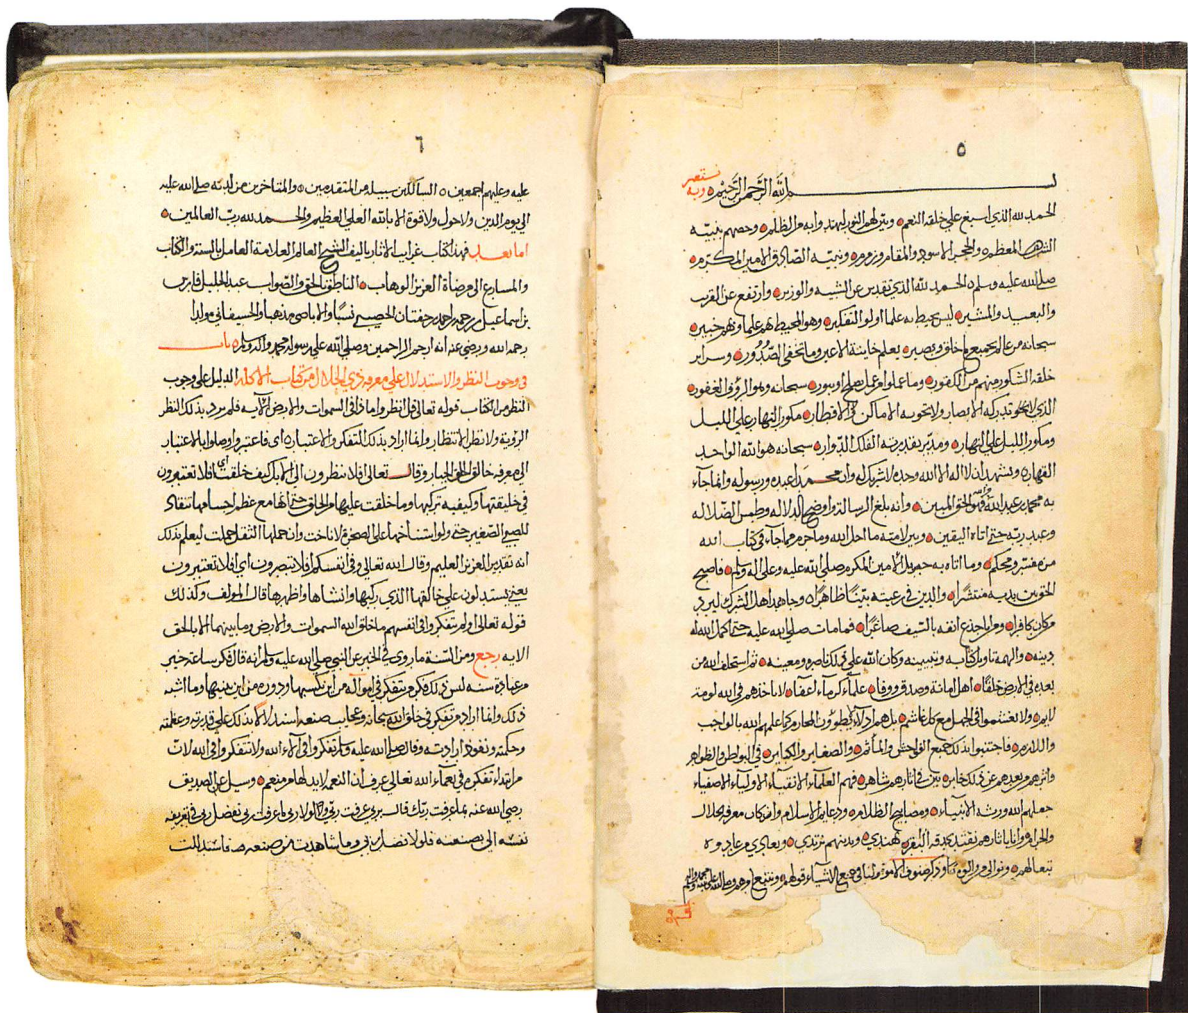 ٥
بسم الله الرحمن الرحيم وبه نستعين
الحمد لله الذي اسبغ على خلقه النعم وبين لهم النور ليهتدوا به من الظلم وخصهم بنبيه
المعظم والحجر الاسود والمقام وزمزم ونبيه الصادق الامين المكرم
صلى الله عليه وسلم الحمد لله الذي تقدس عن الشبيه والوزير وارتفع عن القرب
والبعيد والمشير ليس يحيط به علما اولو التفكير وهو المحيط بهم علما وبهم خبير
سبحانه من عالم بجميع خلقه وبصير يعلم خاينة الاعين وما تخفي الصدور وسراير
خلقه الشكور منهم من الكفور وما عملوا من عمل صالح او بور سبحانه وهو الرؤف الغفور
الذي لا تدركه الابصار ولا تحويه الاماكن في الاقطار مكور النهار على الليل
ومكور الليل على النهار ومدبر بقدرته الفلك الدوار سبحانه هو الله الواحد
القهار ونشهد ان لا اله الا الله وحده لا شريك له وان محمدا عبده ورسوله وان ما جاء
به محمد بن عبد الله فهو الحق المبين وانه بلغ الرسالة واوضح الدلاله وطمس الضلاله
وعبد ربه حتى اتاه اليقين وبين لامته ما احل الله وما حرم مما جاء في كتاب الله
من مفسر ومحكم وما اتاه به جبريل الامين المكرم صلى الله عليه وعلى اله وسلم فاصبح
الحق بين يديه منتشرا والدين في رعيته بينا ظاهرا وجاهد اهل الشرك
كافرا انفه بالسيف صاغرا فما مات صلى الله عليه حتى اكمل الله له
دينه والهمه تاويل كتابه وتبيينه وكان الله على ذلك ناصره ومعينه ثم استخلف الله من
بعده في الارض خلفا اهل امانة وصدق ووفا علماء كرماء اعفاء لا تاخذهم في الله لومة
لايم ولا بل هم ادلاء المحارم كما علمهم الله بالواجب
واللازم فاجتنبوا بذلك جميع الفواحش والمأثم والصغاير والكباير في البواطن والظواهر
فهم العلماء الاتقياء الاولياء الاصفياء
جعلهم الله ورثة الانبياء ومصابيح الظلام ودعايم الاسلام واركان معرفة الحلال
والحرام وانا باثارهم نقتدي نهتدي وبدينهم نرتدي
تبعا لهم
٦
عليه وعليهم اجمعين السالكين سبيله من المتقدمين والمتاخرين من لدنه صلى الله عليه
الى يوم الدين ولا حول ولا قوة الا بالله العلي العظيم والحمد لله رب العالمين
اما بعد فهذا كتاب غرايب الاثار تاليف الشيخ العالم العلامة العامل بالسنة والكتاب
والمسارع الى مرضاة العزيز الوهاب الناطق بالحق والصواب عبد الجليل
بن اسماعيل نسبا والاباضي مذهبا مولدا
رحمه الله ورضي عنه انه ارحم الراحمين وصلى الله على رسوله محمد واله وسلم باب
في وجوب النظر والاستدلال على معرفة ذي الجلال من كتاب الاكله الدليل على وجوب
النظر من الكتاب قوله تعالى قل انظروا ماذا في السموات والارض الآية فلم يرد بذلك النظر
الرؤية ولا نظر الانتظار وانما اراد بذلك التفكر والاعتبار اي فاعتبروا وصلوا بالاعتبار
الى معرفه خالق الخلق الجبار وقال تعالى افلا ينظرون الى الابل كيف خلقت اي افلا تعتبرون
في خلقتها وكيفيه تركيبها وما خلقت عليه من الخلق حتى انها مع عظم اجسامها تنقاد
للصبي الصغير حتى ولو استناخها على الصخرة لاناخت وان حملها الثقل حملت ليعلم بذلك
انه تقدير العزيز العليم وقال الله تعالى وفي انفسكم افلا تبصرون اي افلا تعتبرون
يعني يستدلون على خالقها الذي ركبها وانشاها واظهرها قال المولف وكذلك
قوله تعالى اولم يتفكروا في انفسهم ما خلق الله السموات والارض وما بينهما الا بالحق
الايه رجع ومن السنة ما روي في الخبر عن النبي صلى الله عليه وسلم انه قال فكر ساعة خير
من عبادة سنه ليس ذلك فكر من يتفكر في امواله من اين كسبها ودوره من اين يبنيها وما اشبه
ذلك وانما اراد من تفكر في خلق الله سبحانه وعجايب صنعه استدلالا بذلك على قدرته وعظمته
وحكمته ونفوذ ارادته وقال صلى الله عليه وسلم تفكروا في آلاء الله ولا تتفكروا في الله لان
من ابتداء تفكره في نعماء الله تعالى عرف ان النعم لا بد لها من منعم وسيل عن الصديق
رضي الله عنه بما عرفت ربك قال بربي عرفت ربي ولولا ربي لما عرفت ربي تفضل ربي في تعريفه
نفسه الي بصنعته فلولا تفضل ربي وما شاهدت من صنعه